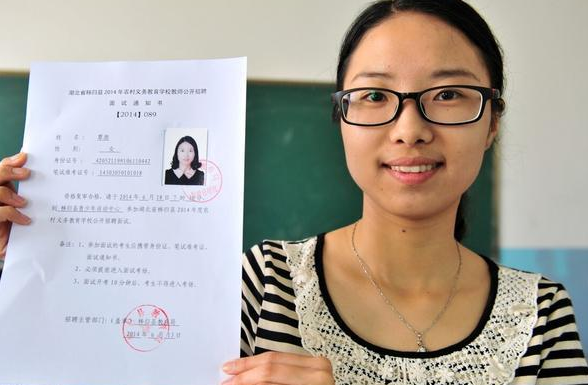 湖北省秭归县2014年农村义务教育学校教师公开招聘
面试通知书
【2014】089
姓 名：
性 别： 女
身份证号：
笔试准考证号：
资格复审合格。请于2014年6月18日7时
到秭归县青少年活动中心参加湖北省秭归县2014年农
村义务教育学校公开招聘面试。
备注：1、参加面试的考生应携带身份证、笔试准考证、
面试通知书。
2、必须提前进入面试考场。
3、面试开考10分钟后，考生不得进入考场。
招聘主管部门：（盖章）秭归县教育局
2014年6月13日